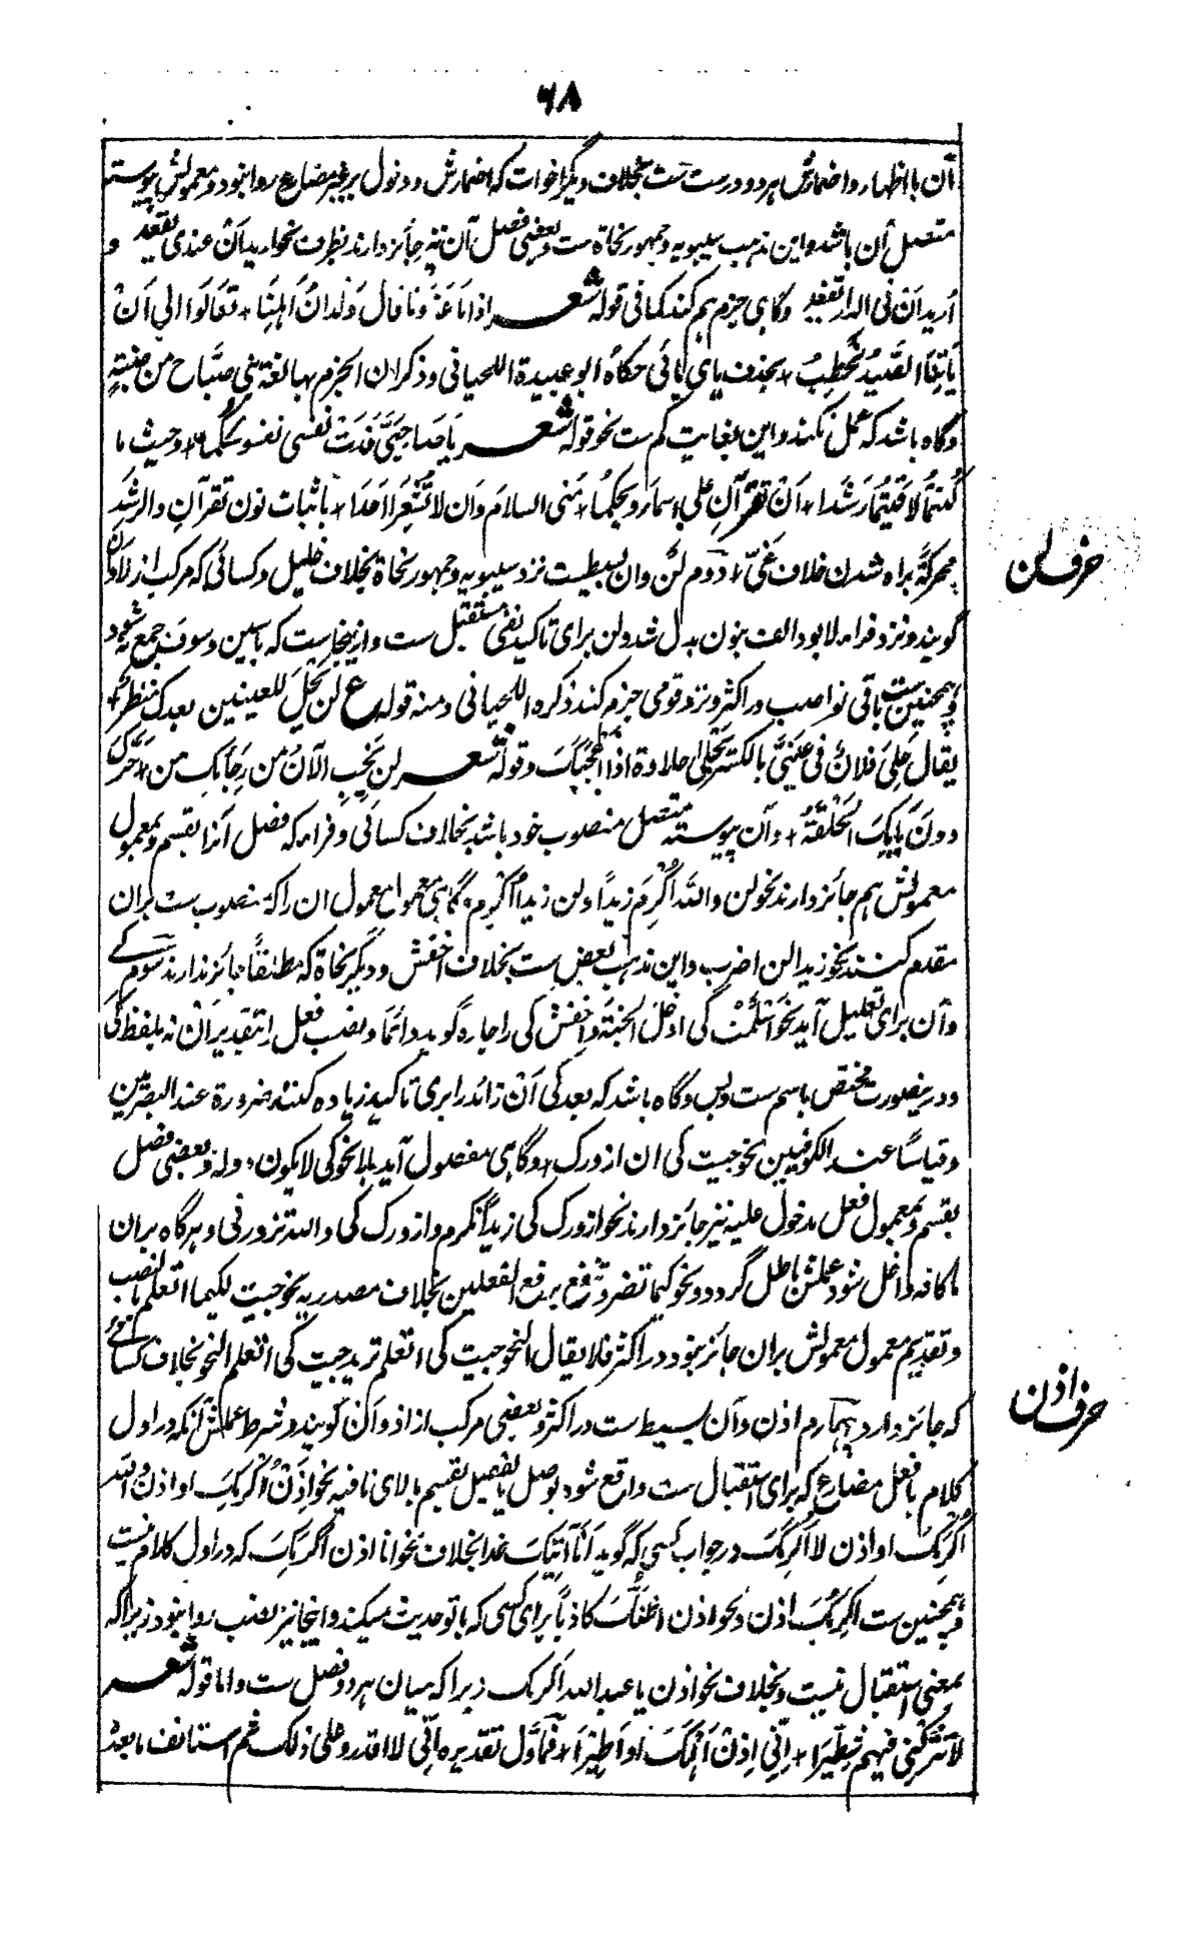 ۶۸
آن با اظهار و اضمارش هر دو درست ست بخلاف دیگر اخوات که اضمارش و دخول بر غیر مضارع روا نبود و معمولش پیوسته
متصل آن باشد و این مذهب سیبویه و جمهور نحاة ست و بعضی فصل آن نیز جائز دارند بظرف نحو ارید اَنْ عندی تقعد و
اُرید اَنْ فی الدار تقعد و گاهی جزم هم کند کما فی قوله شعر اذا مَا غَدَونا قال وِلدانُ اَهلِنَا ٭ تَعَالَوا الی اَنْ
یَأتِنَا الصَّیدُ نَحْطِبُ ٭ بحذف یای یأتی حکاه ابو عبیدة اللحیانی و ذکر ان الجزم بها لغة بنی صبَّاح من ضبَّةِ
و گاه باشد که عمل نکند و این بغایت کم ست نحو قوله شعر یَا صَاحِبَیَّ فَدَتْ نفسی نفوسَکُما ٭ و حیث ما
کُنتُما لاقَیْتُما رَشَدا ٭ اَنْ تَقْرَآنِ علی اسماءَ ویحکُما ٭ مِنی السلامَ وَاَن لا تُشْعِرَا احَدَا ٭ باثبات نون تقرآنِ و الرشَدِ
محرکةً براه شدن خلاف غیّ ٭ دوم لَن و ان بسیط ست نزد سیبویه و جمهور نحاة بخلاف خلیل و کسائی که مرکب از لا و اَن
گویند و نزد فراء لا بود الف بنون بدل شد و لن برای تاکید نفی مستقبل ست و ازینجاست که با سین و سوف جمع نشود
و همچنین ست باقی نواصب در اکثر و نزد قومی جزم کند ذکره اللحیانی و منه قوله ع لن یَحْلَ للعینین بعدک منظرٌ ٭
یقال حَلِیَ فلانٌ فی عَینیَّ بالکسر یَحْلٰی حلاوة اذا اعْجَبَکَ و قوله شعر لن یَخِبِ الآنَ من رَجَائِک من ٭ حَرَّکَ
دونَ بَابِکَ الحَلْقَةْ ٭ و آن پیوسته متصل منصوب خود باشد بخلاف کسائی و فراء که فصل آنرا بقسم و بمعمول
معمولش هم جائز دارند نحو لن و اللّه اُکْرِمَ زیداً و لن زیداً اُکْرِمَ و گاهی معمول معمول ان را که منصوب ست بران
مقدم کنند نحو زیدا لن اضرب و این مذهب بعض ست بخلاف اخفش و دیگر نحاة که مطلقاً جائز ندارند سوم کَے
و آن برای تعلیل آید نحو اَسْلَمْتُ کی ادخلَ الجنةَ و اخفش کی را جاره گوید دائما و نصب فعل را بتقدیر اَنْ نه بلفظ کَی
و درینصورت مختص باسم ست و بس و گاه باشد که بعد کی اَنْ زائد را برای تاکید زیاده کنند ضرورة عند البصریین
و قیاسًا عند الکوفیین نحو جیت کی ان ازورک ٭ و گاهی مفصول آید بلا نحو کی لا یکون دولة و بعضی فصل
بقسم و بمعمول فعل مدخول علیه نیز جائز دارند نحو ازورک کی زیداً تکرم و ازورک کی و اللّه تزورنی و هرگاه بران
ما کافه داخل شود عملش باطل گردد و نحو کیما تضر و تنفع برفع الفعلین بخلاف مصدریه نحو جیت لکیما اتعلم بالنصب
و تقدیم معمول معمولش بران جائز نبود در اکثر فلا یقال النحو جیت کی اتعلم ترید جیت کی اتعلم النحو بخلاف کسائے
که جائز دارد چهارم اذن و آن بسیط ست در اکثر و بعضی مرکب از اذ و اَن گویند و شرط عملش آنکه در اول
کلام با فعل مضارع که برای استقبال ست واقع شود بوصل یا بفصل بقسم یا بلای نافیه نحو اِذَنْ اُکْرِمَکَ او اذن و اللّه
اُکْرِمَکَ او اذن لا اُکْرِمَکَ در جواب کسی که گوید اَنَا آتِیکَ غدا بخلاف نحو انا اذن اُکْرِمُکَ که در اول کلام نیست
و همچنین ست اُکْرِمُکَ اذن و نحو اذن اظنُّکَ کاذباً برای کسی که با تو حدیث میکند و اینجا نیز نصب روا نبود زیرا که
بمعنی استقبال نیست و بخلاف نحو اذن یا عبد اللّه اُکرمک زیرا که میان هر دو فصل ست و اما قوله شعر
لا تَتْرُکَنِّی فیهم شَطِیْرَا ٭ اِنِّی اِذَنْ اَهْلِکَ اَوْ اَطِیْرَا ٭ فمأوَّل تقدیره اِنِّی لا اقدر علی ذلک ثم استانف ما بعدَ
حرف لن
حرف اذن